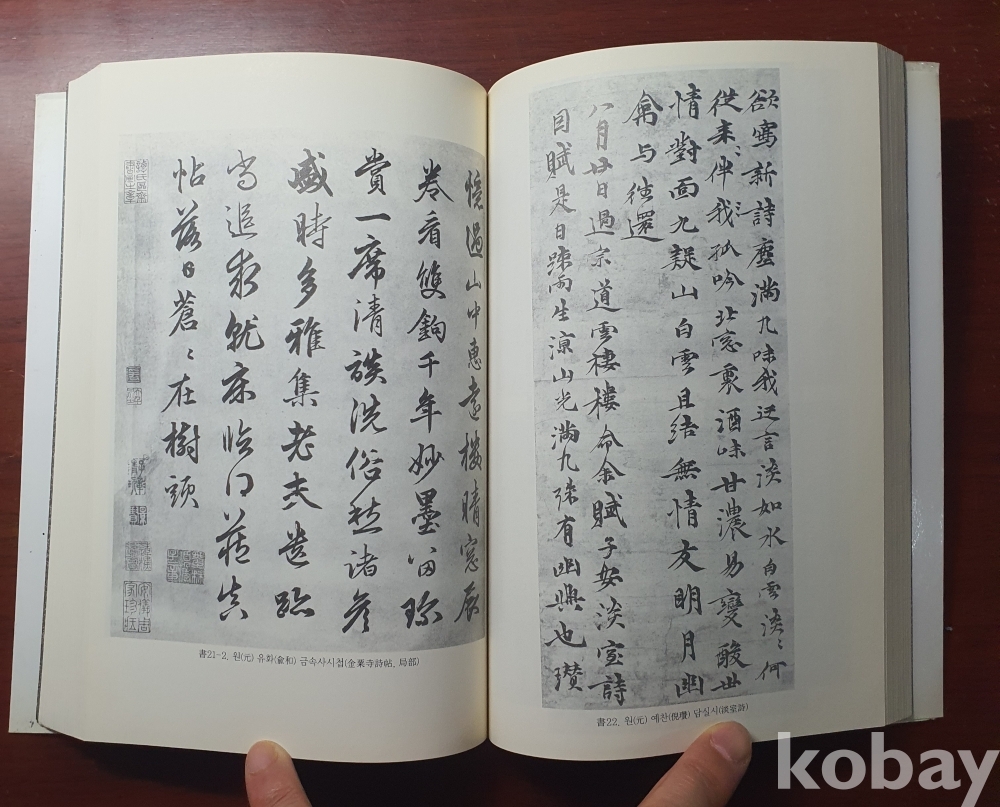 憶過山中惠遠樓晴窓展
卷看雙鉤千年妙墨留珎
賞一席清談洗俗愁諸彥
盛時多雅集老夫遺跡
尚追求就床臨蘓真
帖落日蒼〻在樹頭
書21-2. 원(元) 유화(兪和) 금속사시첩(金粟寺詩帖, 局部)
欲寫新詩塵滿几味我迂言淡如水白雲淡〻何
從來〻伴我孤吟北窓裏酒味甘濃易變酸世
情對面九疑山白雲且結無情友明月幽
禽与往還
八月廿日過宗道雲棲樓命余賦子安淡室詩
目賦是日踈雨生涼山光滿几殊有幽興也瓚
書22. 원(元) 예찬(倪瓚) 담실시(淡室詩)
kobay